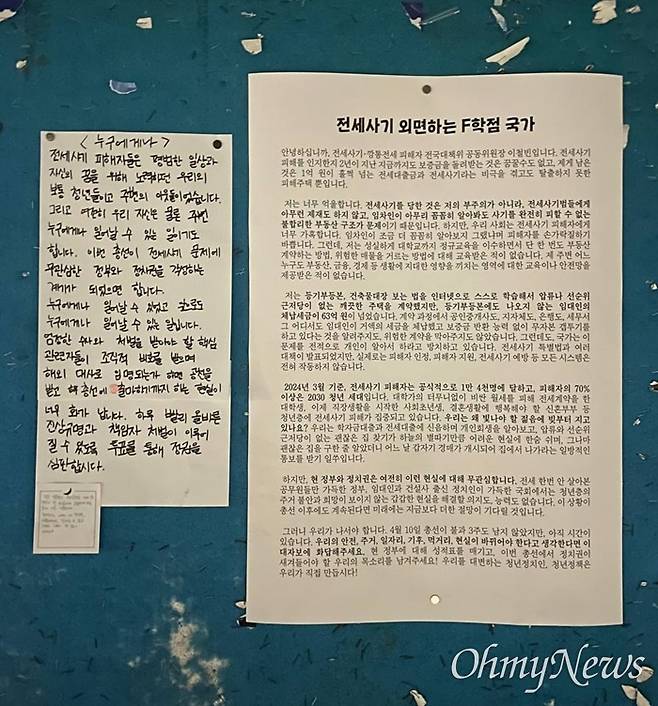 < 누구에게나 >
전세사기 피해자들은 평범한 일상과
자신의 꿈을 위해 노력하던 우리의
보통 청년들이고 주변의 이웃들이었습니다.
그리고 여전히 우리 자신은 물론 주변
누구에게나 일어날 수 있는 일이기도
합니다. 이번 총선이 전세사기 문제에
무관심한 정부와 정치권을 걱정하는
계기가 되었으면 합니다.
누구에게나 일어날 수 있었고 앞으로도
누구에게나 일어날 수 있는 일입니다.
엄정한 수사와 처벌을 받아야 할 핵심
관련자들이 조직적 비호를 받으며
해외 대사로 임명되는가 하면 공천을
받고 해 총선에 출마하기까지 하는 현실이
너무 화가 납니다. 하루 빨리 올바른
진상규명과 책임자 처벌이 이루어
질 수 있도록 투표를 통해 정권을
심판합시다.
전세사기 외면하는 F학점 국가
안녕하십니까, 전세사기·깡통전세 피해자 전국대책위 공동위원장 이철빈입니다. 전세사기
피해를 인지한지 2년이 지난 지금까지도 보증금을 돌려받는 것은 꿈꿀수도 없고, 제게 남은
것은 1억 원이 훌쩍 넘는 전세대출금과 전세사기라는 비극을 겪고도 탈출하지 못한
피해주택 뿐입니다.
저는 너무 억울합니다. 전세사기를 당한 것은 저의 부주의가 아니라, 전세사기범들에게
아무런 제재도 하지 않고, 임차인이 아무리 꼼꼼히 알아봐도 사기를 완전히 피할 수 없는
불합리한 부동산 구조가 문제이기 때문입니다. 하지만, 우리 사회는 전세사기 피해자에게
너무 가혹합니다. 임차인이 조금 더 꼼꼼히 알아보지 그랬냐며 피해자를 손가락질하기
바쁩니다. 그런데, 저는 성실하게 대학교까지 정규교육을 이수하면서 단 한 번도 부동산
계약하는 방법, 위험한 매물을 거르는 방법에 대해 교육받은 적이 없습니다. 제 주변 어느
누구도 부동산, 금융, 경제 등 생활에 지대한 영향을 끼치는 영역에 대한 교육이나 안전망을
제공받은 적이 없습니다.
저는 등기부등본, 건축물대장 보는 법을 인터넷으로 스스로 학습해서 압류나 선순위
근저당이 없는 깨끗한 주택을 계약했지만, 등기부등본에도 나오지 않는 임대인의
체납세금이 63억 원이 넘었습니다. 계약 과정에서 공인중개사도, 지자체도, 은행도, 세무서
그 어디서도 임대인이 거액의 세금을 체납했고 보증금 반환 능력 없이 무자본 갭투기를
하고 있다는 것을 알려주지도, 위험한 계약을 막아주지도 않았습니다. 그런데도, 국가는 이
문제를 전적으로 개인이 알아서 하라고 방치하고 있습니다. 전세사기 특별법과 여러
대책이 발표되었지만, 실제로는 피해자 인정, 피해자 지원, 전세사기 예방 등 모든 시스템은
전혀 작동하지 않습니다.
2024년 3월 기준, 전세사기 피해자는 공식적으로 1만 4천명에 달하고, 피해자의 70%
이상은 2030 청년 세대입니다. 대학가의 터무니없이 비싼 월세를 피해 전세계약을 한
대학생, 이제 직장생활을 시작한 사회초년생, 결혼생활에 행복해야 할 신혼부부 등
청년층에 전세사기 피해가 집중되고 있습니다. 우리는 왜 빛나야 할 젊음에 빚부터 지고
있나요? 우리는 학자금대출과 전세대출에 신음하며 개인회생을 알아보고, 압류와 선순위
근저당이 없는 괜찮은 집 찾기가 하늘의 별따기만큼 어려운 현실에 한숨 쉬며, 그나마
괜찮은 집을 구한 줄 알았더니 어느 날 갑자기 경매가 개시되어 집에서 나가라는 일방적인
통보를 받기 일쑤입니다.
하지만, 현 정부와 정치권은 여전히 이런 현실에 대해 무관심합니다. 전세 한번 안 살아본
공무원들만 가득한 정부, 임대인과 건설사 출신 정치인이 가득한 국회에서는 청년층의
주거 불안과 희망이 보이지 않는 갑갑한 현실을 해결할 의지도, 능력도 없습니다. 이 상황이
총선 이후에도 계속된다면 미래에는 지금보다 더한 절망이 기다릴 것입니다.
그러니 우리가 나서야 합니다. 4월 10일 총선이 불과 3주도 남지 않았지만, 아직 시간이
있습니다. 우리의 안전, 주거, 일자리, 기후, 먹거리, 현실이 바뀌어야 한다고 생각한다면 이
대자보에 화답해주세요. 현 정부에 대해 성적표를 매기고, 이번 총선에서 정치권이
새겨들어야 할 우리의 목소리를 남겨주세요! 우리를 대변하는 청년정치인, 청년정책은
우리가 직접 만듭시다!
OhmyNews